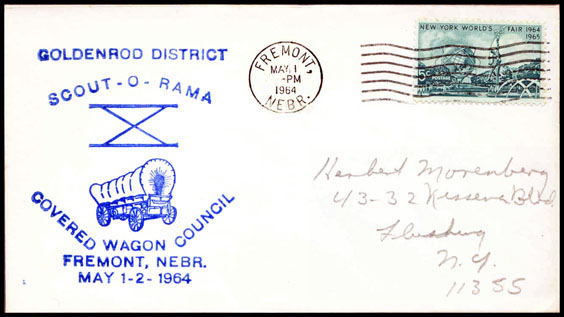 GOLDENROD DISTRICT
SCOUT-O-RAMA
COVERED WAGON COUNCIL
FREMONT, NEBR.
MAY 1-2-1964
FREMONT,
MAY 1
-PM
1964
NEBR.
NEW YORK WORLD'S FAIR 1964
1965
5c POSTAGE
Herbert Morenberg
43-32 Kissena Blvd.
N.Y.
11355